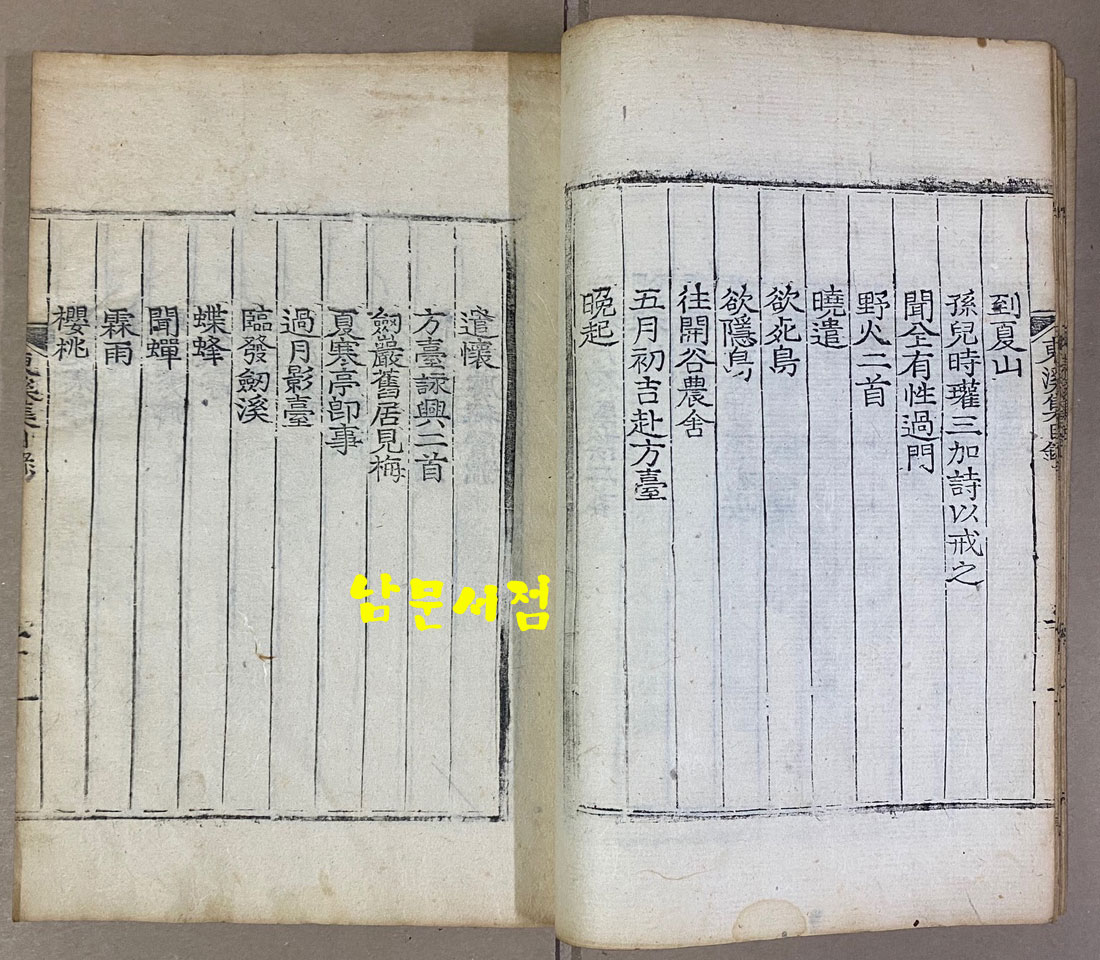 東溪集目錄
到夏山
孫兒時瓘三加詩以戒之
聞全有性過門
野火二首
曉遣
欲死島
欲隱島
往開谷農舍
五月初吉赴方臺
晩起
遣懷
方臺詠興二首
劒巖舊居見梅
夏寒亭卽事
過月影臺
臨發劒溪
蝶蜂
聞蟬
霖雨
櫻桃
남문서점